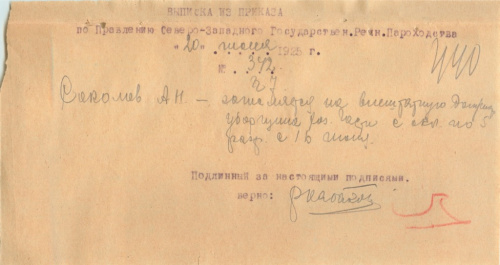 ВЫПИСКА ИЗ ПРИКАЗА
по Правлению Северо-Западного Государствен. Речн. Пароходства
"20" июля 1925 г.
№ 342
440
§ 7
Соколов А.Н. – зачисляется на внештатную должн.
уборщика хоз. части с окл. по 5
разр. с 16 июля.
Подлинный за настоящими подписями.
верно: